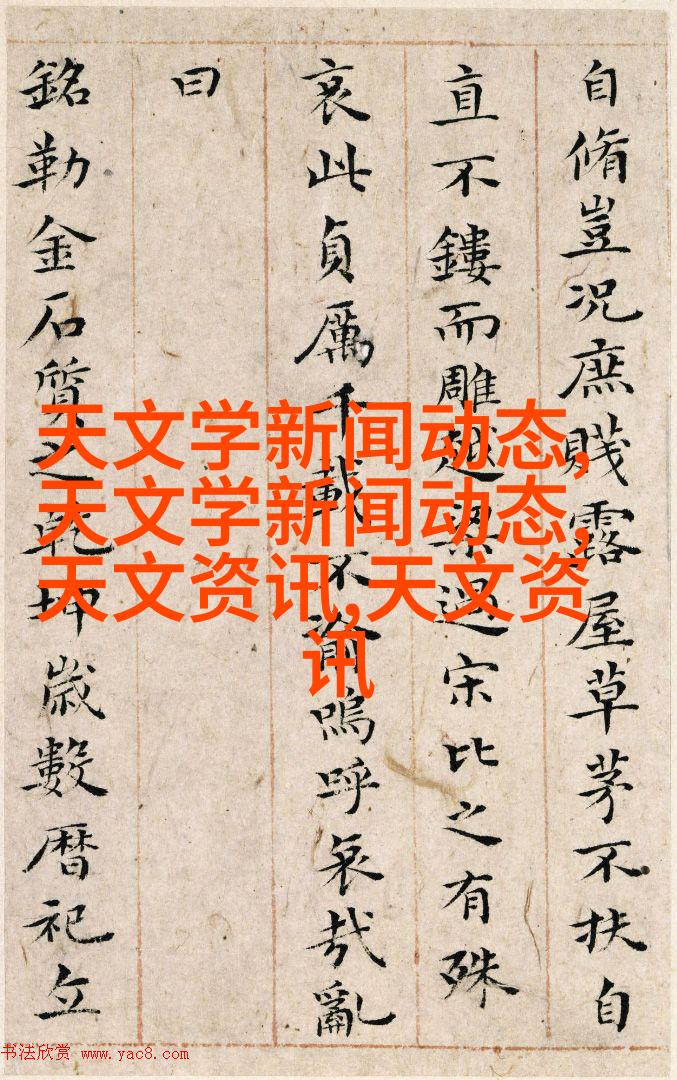 自脩豈况庶賎露屋草茅不扶自
直不鏤而雕越梁過宋比之有殊
哀此貞厲千載不渝嗚呼哀哉亂
曰
銘勒金石質之乾坤歲數暦祀立
天文学新闻动态,
天文学新闻动态,
天文资讯,天文资
讯
书法欣赏 www.yac8.com